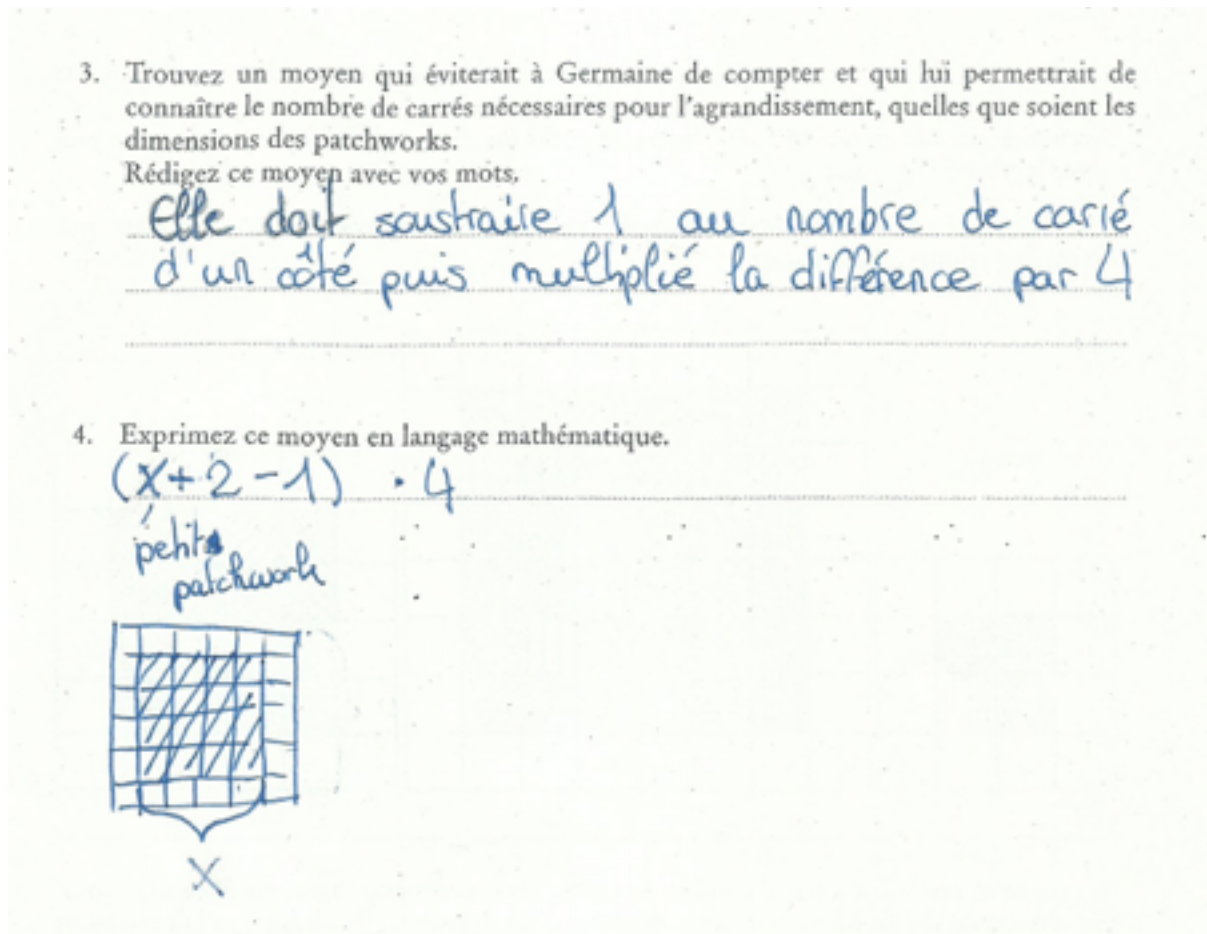 3. Trouvez un moyen qui éviterait à Germaine de compter et qui lui permettrait de
connaître le nombre de carrés nécessaires pour l'agrandissement, quelles que soient les
dimensions des patchworks.
Rédigez ce moyen avec vos mots.
Elle doit soustraire 1 au nombre de carré
d'un côté puis multiplié la différence par 4
4. Exprimez ce moyen en langage mathématique.
(x+2-1) · 4
petit
patchwork
x